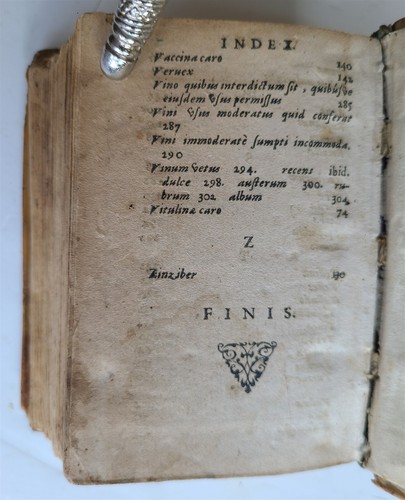 INDEX.
Vaccina caro 140
Veruex 142
Vino quibus interdictum sit, quibusve
eiusdem vsus permissus 285
Vini vsus moderatus quid conferat
287
Vini immoderatè sumpti incommoda.
290
Vinum vetus 294. recens ibid.
dulce 298. austerum 300. ru-
brum 302 album 304
Vitulina caro 74
Z
Zinziber
FINIS.